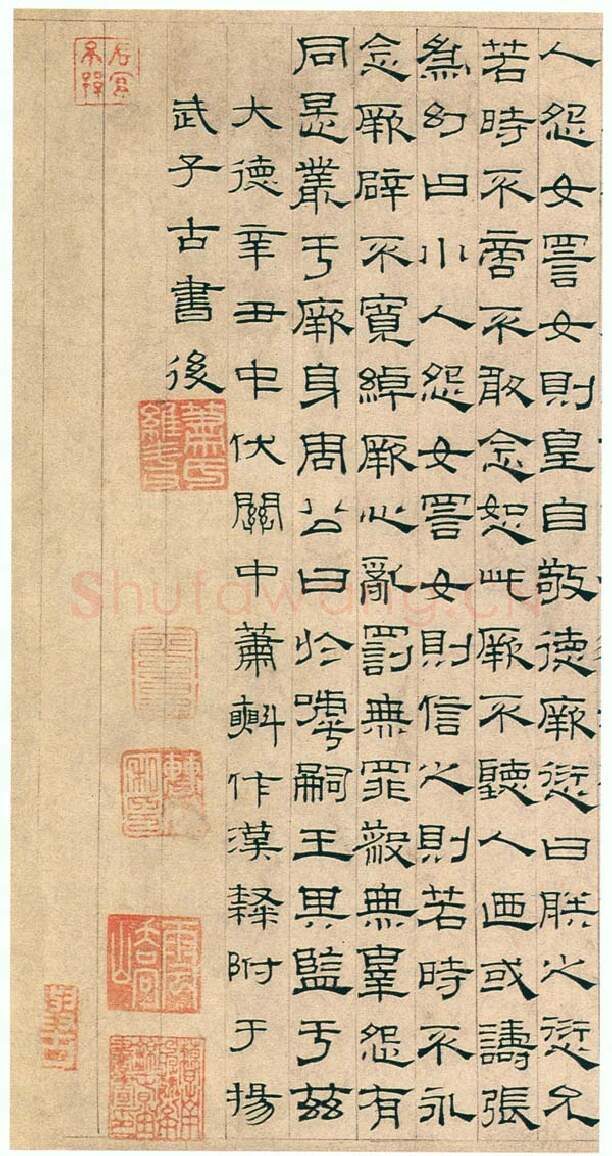 人怨女詈女則皇自敬德厥愆曰朕之愆允
若時不啻不敢含怒此厥不聽人迺或譸張
為幻曰小人怨女詈女則信之則若時不永
念厥辟不寬綽厥心亂罰無罪殺無辜怨有
同是叢于厥身周公曰於嘑嗣王其監于茲
大德辛丑中伏關中蕭𣂏作漢隸附于揚
武子古書後
蕭氏維斗
Shufawang.CN